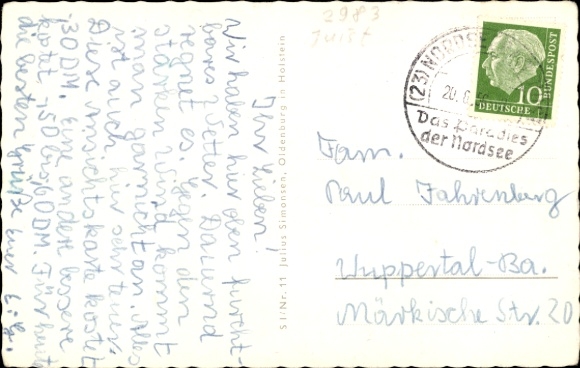 Ihr Lieben!
Wir haben hier oben furcht-
bares Wetter. Dauernd
regnet es. Gegen den
starken Wind kommt
man garnicht an. Alles
ist auch hier sehr teuer.
Diese Ansichtskarte kostet
-.30 DM. Eine andere bessere
kostet -.50 bis -.60 DM. Für heute
die besten Grüße Euer
S I/Nr. 11 Julius Simonsen, Oldenburg in Holstein
2983
Juist
(23) NORDSE
20. 6.
Das Paradies
der Nordsee
10
DEUTSCHE
BUNDESPOST
Fam.
Paul Fahrenberg
Wuppertal-Ba.
Märkische Str. 20